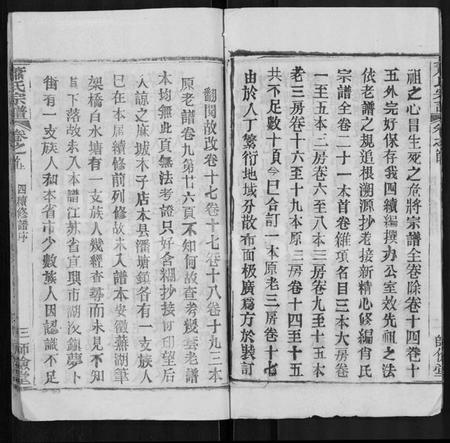 祖之心目生死之危將宗譜全卷除卷十四卷十
五外完好保存我四續編撰办公室效先祖之法
依老譜之規追根溯源抄老接新精心修編肖氏
宗譜全卷二十一本首卷雜項名目三本大房卷
一至五本二房卷六至八本三房卷九至十五本
老三房卷十六至十九本原三房卷十四至十五
共不足數十頁今已合訂一本原老三房卷十七
由於人丁繁衍地域分散布面極廣爲方於裝訂
翻閱故改卷十七卷十七卷十八卷十九三本
原老譜卷九第廿六頁不知何故查考幾套老譜
本均無此頁無法考證只好含糊抄接訂印望后
人諒之麻城木子店本县潘塘鎮各有一支族人
已在本届續修前列修故未入譜本安徽蕪湖筆
架橋白水塘有一支族人幾經查尋而未見不知
其下落故未入本譜江苏省宜興市湖㳇鎮夢卜
街有一支族人和本省市少數族人因認識不足
蕭氏宗譜
卷之首
四續修譜序
三
師儉堂